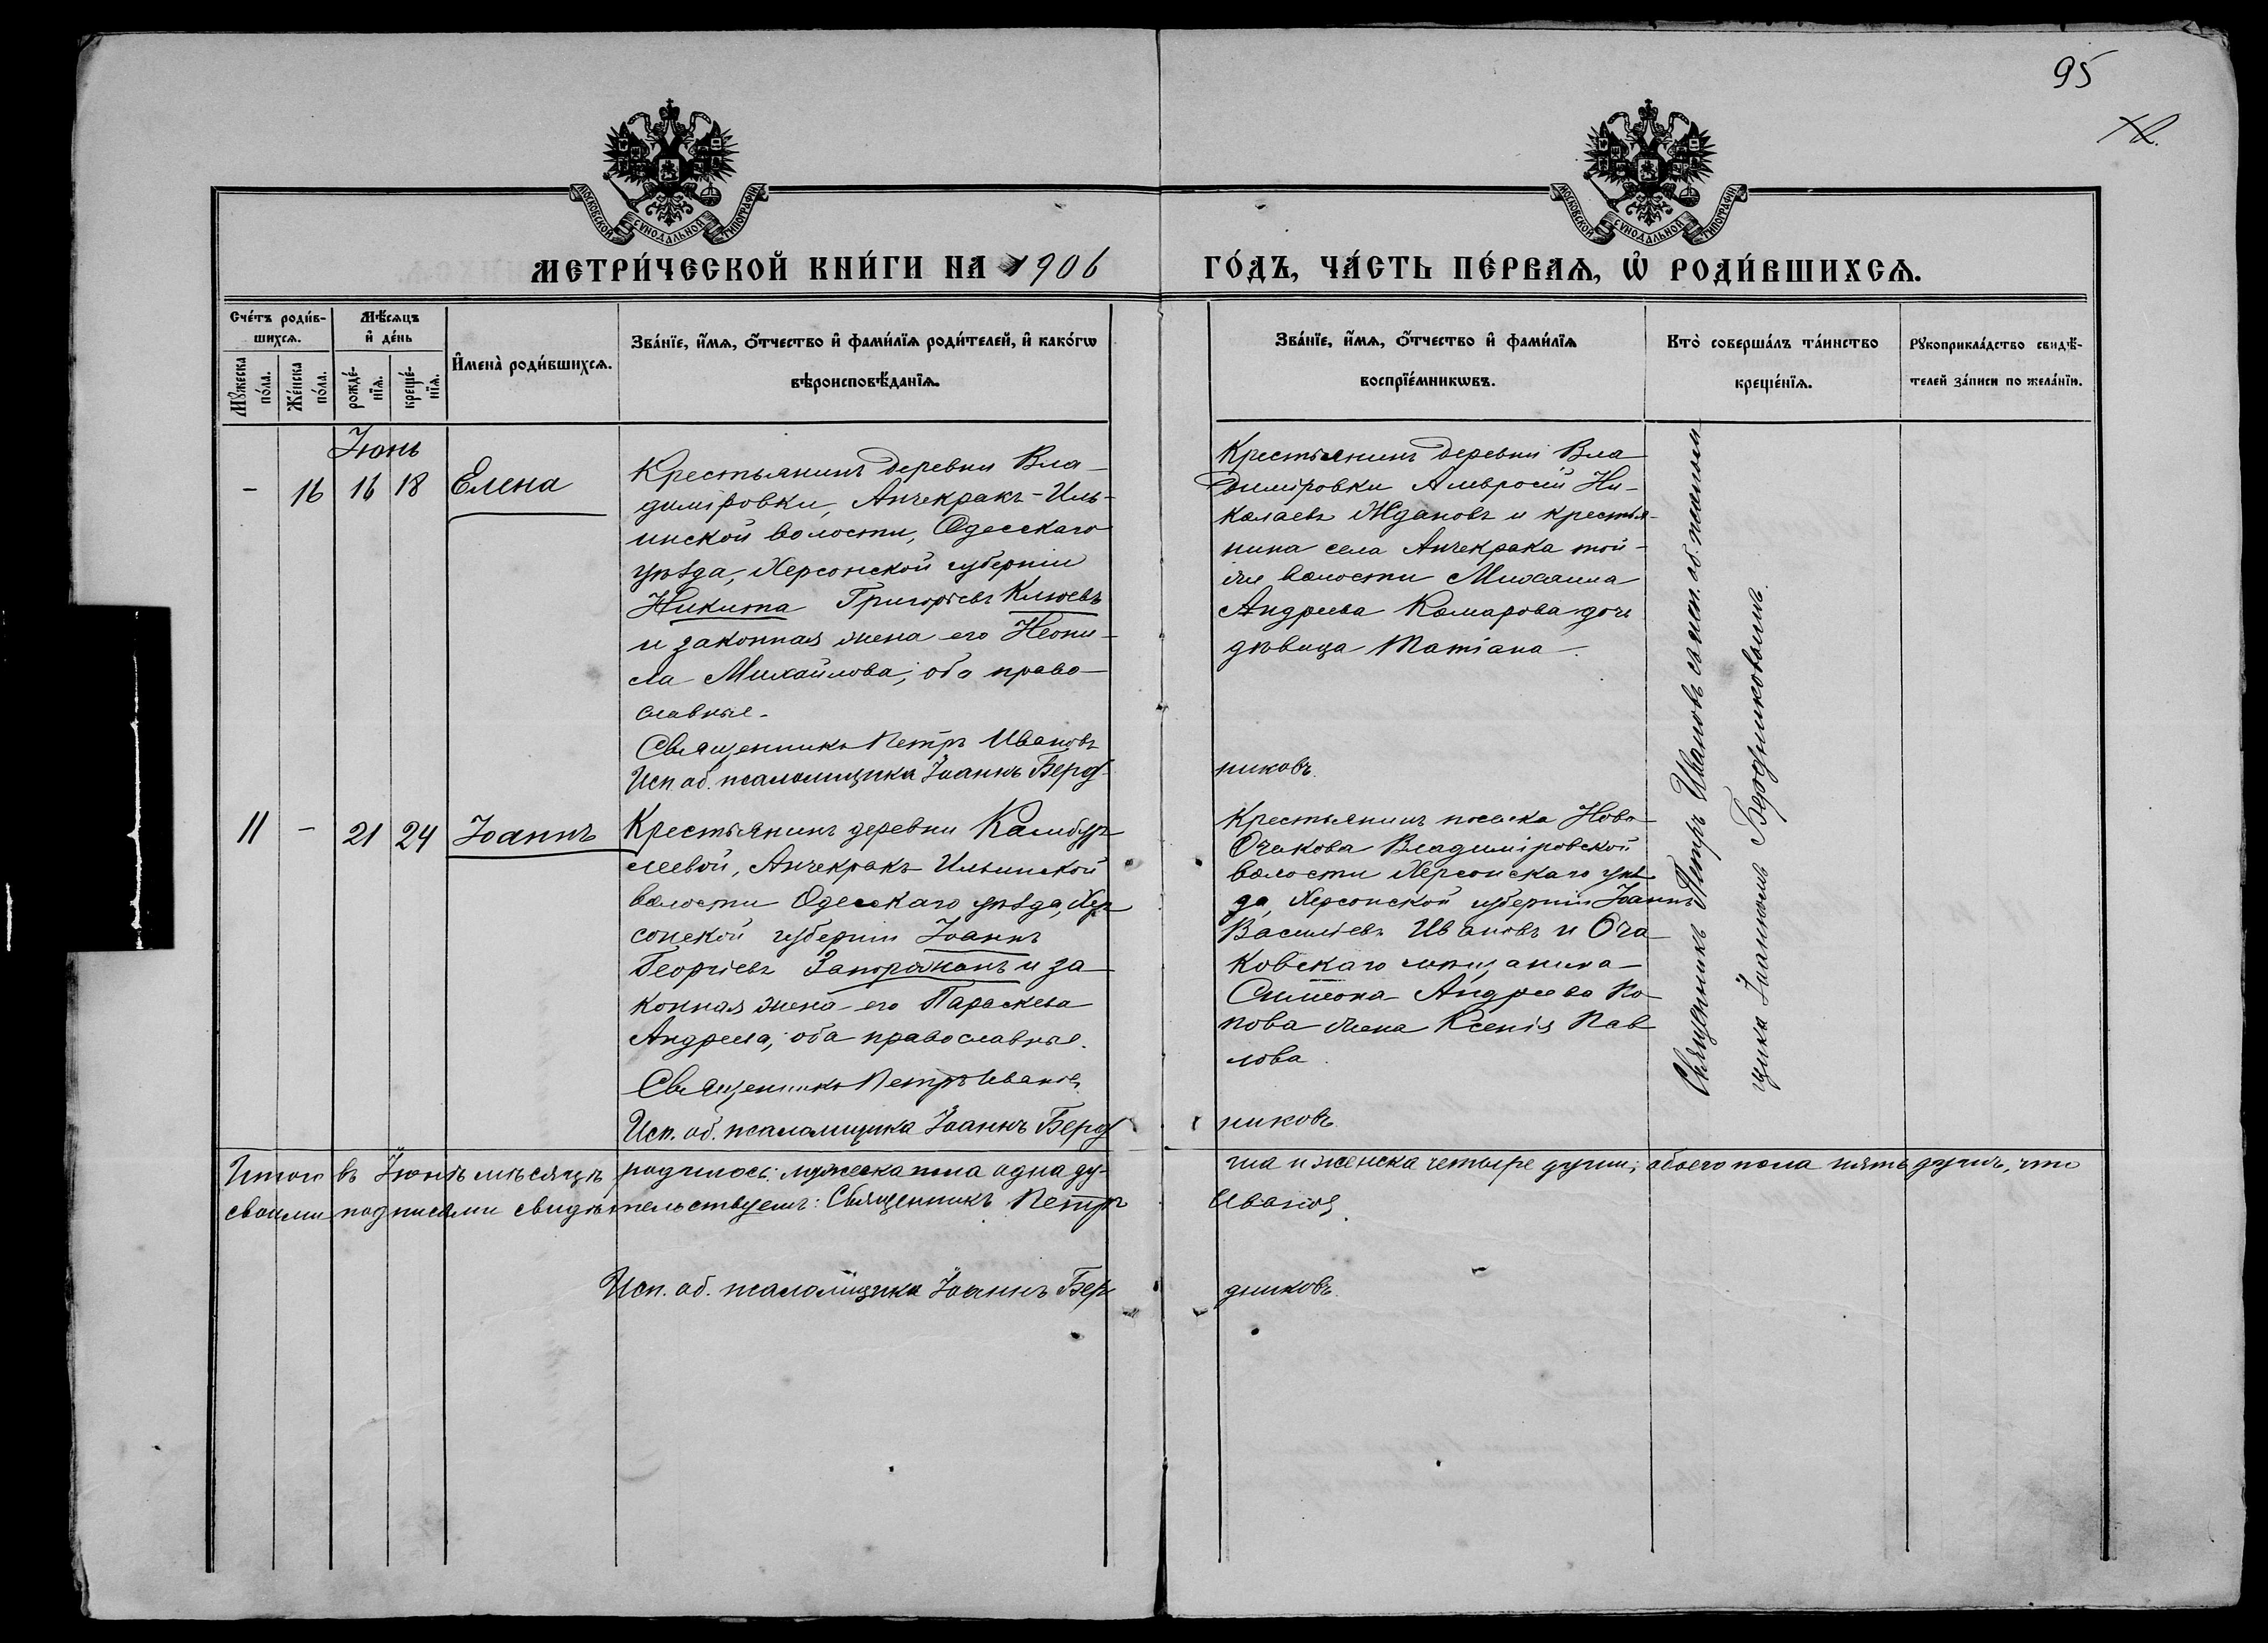 95
МОСКОВСКОЙ СѴНОДАЛЬНОЙ ТИПОГРАФІИ
МОСКОВСКОЙ СѴНОДАЛЬНОЙ ТИПОГРАФІИ
МЕТРИ́ЧЕСКОЙ КНИ́ГИ НА 1906
ГО́ДЪ, ЧА́СТЬ ПЕ́РВАѦ, Ѽ РОДИ́ВШИХСѦ.
Сче́тъ роди́в-
шихсѧ.
Мꙋжеска
по́ла.
Же́нска
по́ла.
Мѣ́сѧцъ
и҆ де́нь
рожде́-
нїѧ.
креще́-
нїѧ.
И҆мена̀ роди́вшихсѧ.
Зва́нїе, и҆́мѧ, ѻ҆́тчество и҆ фами́лїѧ роди́телей, и҆ како́гѡ
вѣроисповѣ́данїѧ.
Зва́нїе, и҆́мѧ, ѻ҆́тчество и҆ фами́лїѧ
воспрїе́мникѡвъ.
Кто̀ соверша́лъ та́инство
креще́нїѧ.
Рꙋкоприкла́дство свидѣ́-
телей за́писи по жела́нїю.
Іюнь
- 16 16 18 Елена
Крестьянинъ деревни Вла-
диміровки, Анчекракъ-Иль-
инской волости, Одесскаго
уѣзда, Херсонской губерніи
Никита Григорьевъ Клюевъ
и законная жена его Неони-
ла Михайлова; оба право-
славные.
Священникъ Петръ Ивановъ
Исп. об. псаломщика Іоаннъ Берд-
Крестьянинъ деревни Вла-
диміровки Амвросій Ни-
колаевъ Ждановъ и крестья-
нина села Анчекрака той-
же волости Михаила
Андреева Комарова дочь
дѣвица Татіана.
никовъ.
11 - 21 24 Іоаннъ
Крестьянинъ деревни Камбур-
леевой, Анчекракъ-Ильинской
волости Одесскаго уѣзда, Хер-
сонской губерніи Іоаннъ
Георгіевъ Запорожанъ и за-
конная жена его Параскева
Андреева; оба православные.
Священникъ Петръ Ивановъ
Исп. об. псаломщика Іоаннъ Берд-
Крестьянинъ поселка Ново-
Очакова Владиміровской
волости Херсонскаго уѣз-
да, Херсонской губерніи Іоаннъ
Василіевъ Ивановъ и Оча-
ковскаго мѣщанина
Симеона Андреева По-
пова жена Ксенія Пав-
лова.
никовъ
Священникъ Петръ Ивановъ съ исп. об. псалом-
щика Іоанномъ Бердниковымъ.
Итого въ Іюнѣ мѣсяцѣ родилось: мужеска пола одна ду-
ша и женска четыре души; обоего пола пять душъ, что
своими подписями свидѣтельствуемъ: Священникъ Петръ
Ивановъ.
Исп. об. псаломщика Іоаннъ Бер-
дниковъ.